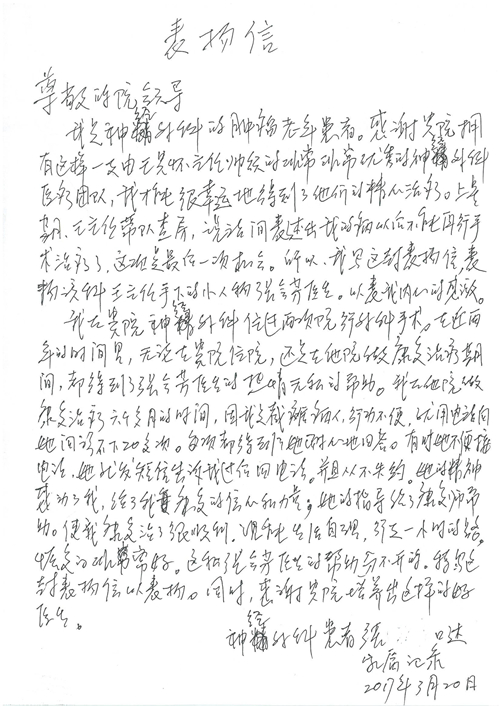 表扬信
尊敬的院领导
我是神经外科的肿瘤老年患者。感谢贵院拥
有这样一支由王贵怀主任帅领的非常非常优秀的神经外科
医疗团队，我才能很幸运地得到了他们的精心治疗。上星
期、王主任带队查房，谈话间表述出我的病以后不能再行手
术治疗了，这次是最后一次机会。所以，我写这封表扬信，表
扬该科王主任手下的小人物张会芳医生。以表我内心的感激。
我在贵院神经外科住过两次院行外科手术。在近两
年的时间里，无论在贵院住院，还是在他院做康复治疗期
间，都得到了张会芳医生的热情无私的帮助。我在他院做
康复治疗六个月的时间，因我是截瘫病人，行动不便，就用电话向
她问诊不下20多次。每次都得到了她耐心地回答。有时她不便接
电话，她就发短信告诉我过后回电话。并且从不失约。她的精神
感动了我，给了我康复的信心和力量；她的指导给了康复师帮
助。使我康复治疗很顺利。现在能生活自理，行走一小时的路。
恢复的非常好。这和张会芳医生的帮助分不开的。特写这
封表扬信以表扬。同时，感谢贵院培养出这样的好
医生。
神经外科患者张 口述
家属记录
2017年3月20日